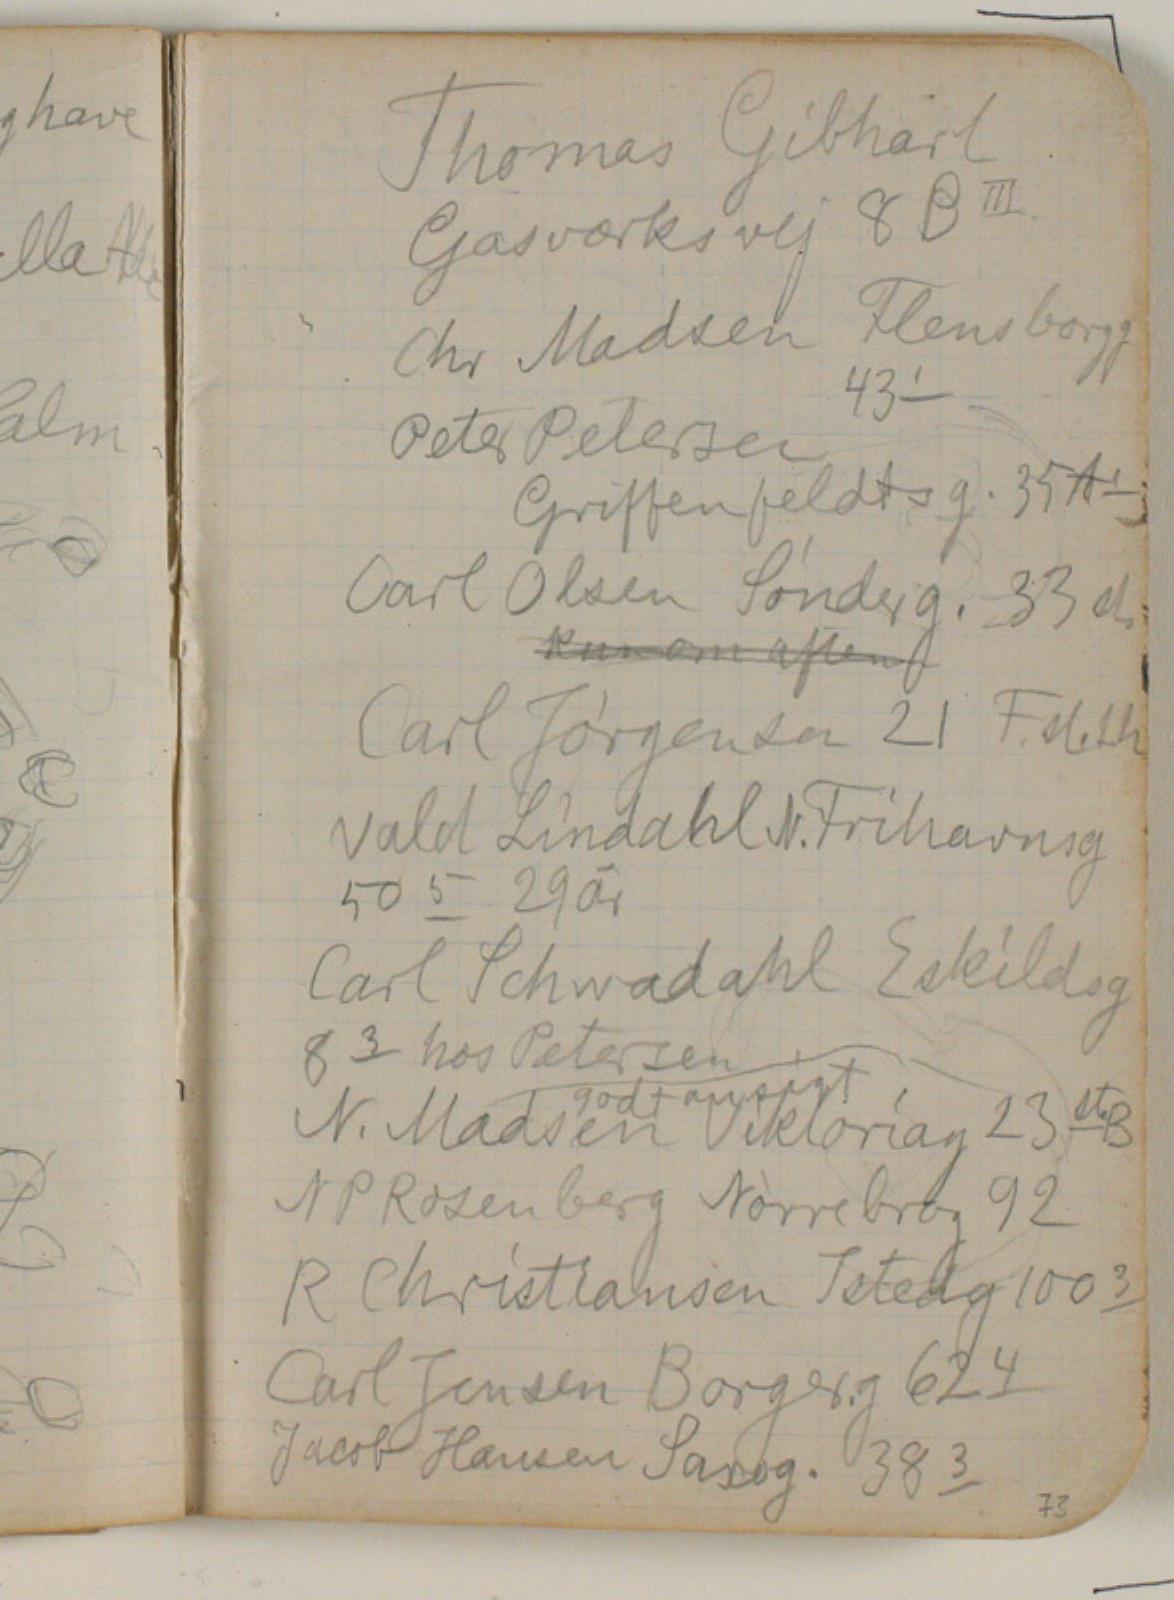 ghave
lla
alm
Thomas Gibharl
Gasværksvej 8 B III
Chr Madsen Flensborgg
43 1
Peter Petersen
Griffenfeldtsg. 35
Carl Olsen Sønderg. 33
kun om aften
Carl Jørgensen 21 F. st. th
Vald Lindahl N. Frihavnsg
50 5 29 år
Carl Schwadahl Eskildsg
8 3 hos Petersen
godt ansigt
N. Madsen Viktoriag 23 st B
N P Rosenberg Nørrebrog 92
R Christiansen Istedg 100 3
Carl Jensen Borgerg 62 4
Jacob Hansen Saxog. 38 3
73